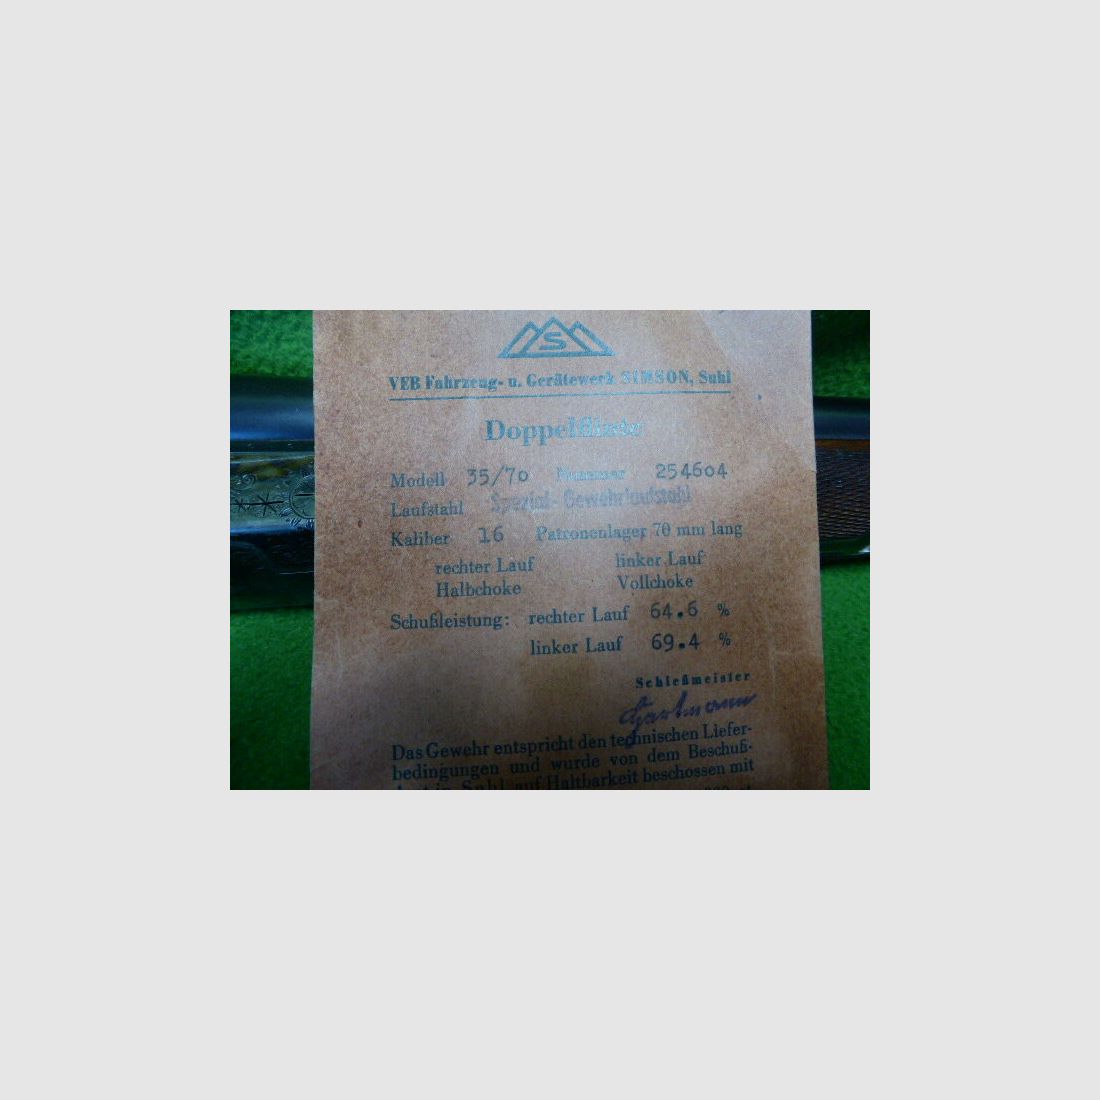 S
VEB Fahrzeug- u. Gerätewerk SIMSON, Suhl
Doppelflinte
Modell 35/70 Nummer 254604
Laufstahl Spezial-Gewehrlaufstahl
Kaliber 16 Patronenlager 70 mm lang
rechter Lauf linker Lauf
Halbchoke Vollchoke
Schußleistung: rechter Lauf 64.6 %
linker Lauf 69.4 %
Schießmeister
Hartmann
Das Gewehr entspricht den technischen Liefer-
bedingungen und wurde von dem Beschuß-
in Suhl auf Haltbarkeit beschossen mit